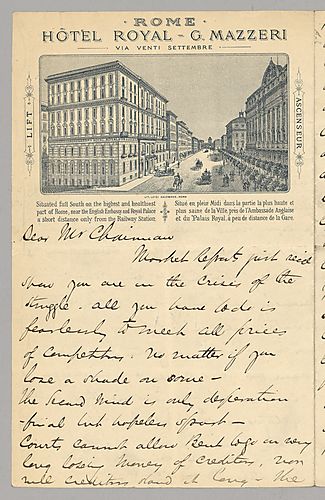 ROME
HÔTEL ROYAL - G. MAZZERI
VIA VENTI SETTEMBRE
LIFT
ASCENSEUR
Situated full South on the highest and healthiest
part of Rome, near the English Embassy and Royal Palace
a short distance only from the Railway Station.
Situé en plein Midi dans la partie la plus haute et
plus saine de la Ville, près de l'Ambassade Anglaise
et du Palais Royal, à peu de distance de la Gare.
Dear Mr Chairman
Market report just recd
show you are in the Crisis of the
struggle. all you have to do is
fearlessly to meet all prices
of Competitors. no matter if you
lose a shade on some —
the second wind is only desperation
final but hopeless spurt —
Courts cannot allow to go on very
long losing money of creditors, nor
will creditors stand it long — The